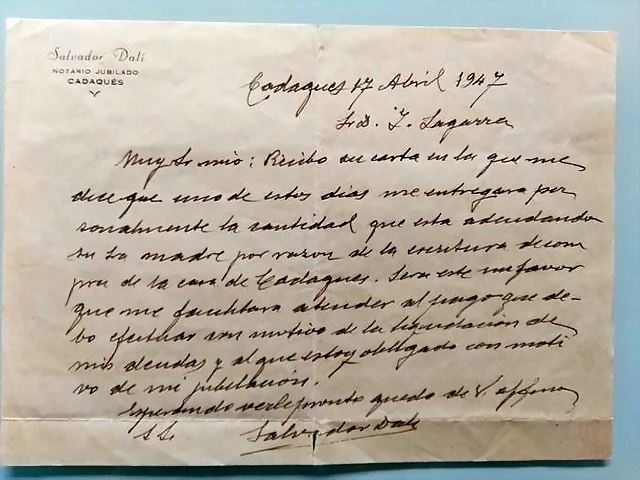 Salvador Dalí
NOTARIO JUBILADO
CADAQUÉS
Cadaques 17 Abril 1947
Sr D. J. Sagarra
Muy Sr mio: Recibo su carta en la que me
dice que uno de estos dias me entregara per
sonalmente la cantidad que esta adeudando
su Sa madre por razon de la escritura de com
pra de la casa de Cadaques. Sera este un favor
que me facilitara atender al pago que de-
bo efectuar con motivo de la liquidacion de
mis deudas y al que estoy obligado con moti
vo de mi jubilación.
Esperando verle pronto quedo de V. affmo
S S.
Salvador Dalí